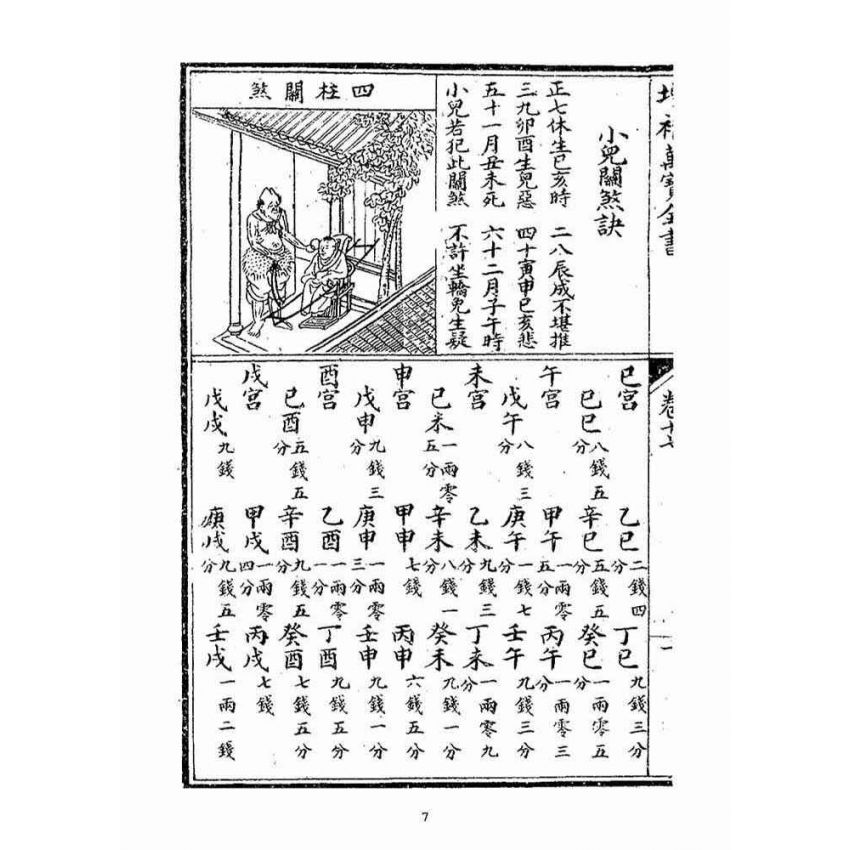 補萬寶全書
卷十七
一
小兒關煞訣
正七休生巳亥時 二八辰戌不堪推
三九卯酉生兒惡 四十寅申巳亥悲
五十一月丑未死 六十二月子午時
小兒若犯此關煞 不許坐轎免生疑
四柱關煞
巳宮 乙巳二錢四分 丁巳九錢三分
己巳八錢五分 辛巳五錢五分 癸巳一兩零五分
午宮 甲午一兩零五分 丙午一兩零三分
戊午八錢三分 庚午一錢七分 壬午九錢三分
未宮 乙未九錢三分 丁未一兩零九分
己未一兩零五分 辛未八錢一分 癸未九錢一分
申宮 甲申七錢 丙申六錢五分
戊申九錢三分 庚申一兩零三分 壬申九錢一分
酉宮 乙酉一兩零一分 丁酉九錢五分
己酉五錢五分 辛酉九錢五分 癸酉七錢五分
戌宮 甲戌一兩零四分 丙戌七錢
戊戌九錢 庚戌九錢五分 壬戌一兩二錢
7